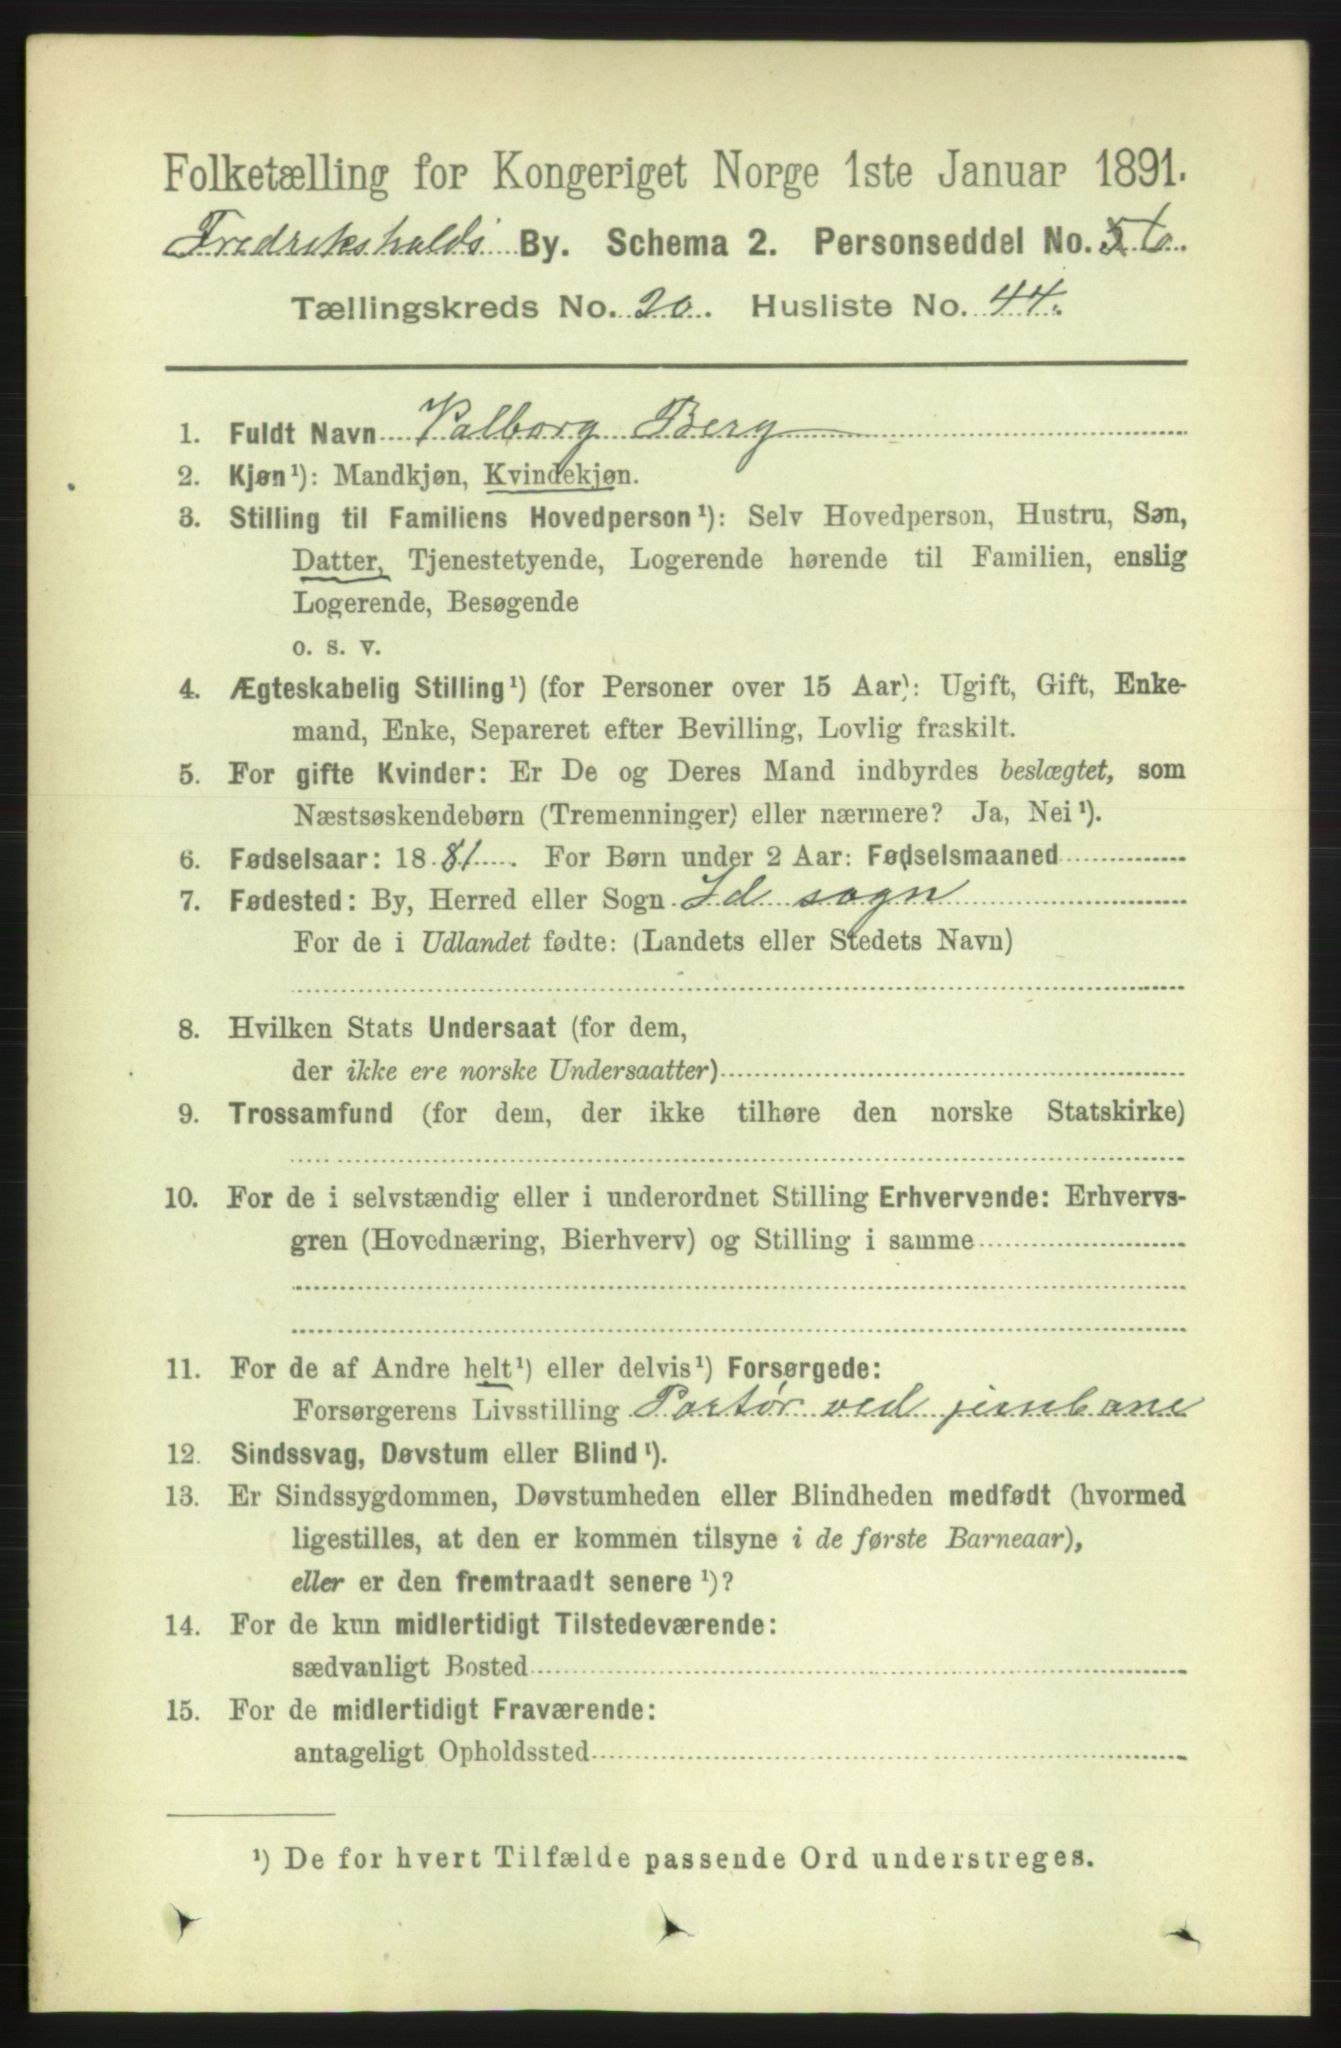 Folketælling for Kongeriget Norge 1ste Januar 1891.
Fredrikshalds By. Schema 2. Personseddel No. 6.
Tællingskreds No. 20. Husliste No. 44.
1. Fuldt Navn Valborg Berg
2. Kjøn¹): Mandkjøn, Kvindekjøn.
3. Stilling til Familiens Hovedperson¹): Selv Hovedperson, Hustru, Søn,
Datter, Tjenestetyende, Logerende hørende til Familien, enslig
Logerende, Besøgende
o. s. v.
4. Ægteskabelig Stilling¹) (for Personer over 15 Aar): Ugift, Gift, Enke-
mand, Enke, Separeret efter Bevilling, Lovlig fraskilt.
5. For gifte Kvinder: Er De og Deres Mand indbyrdes beslægtet, som
Næstsøskendebørn (Tremenninger) eller nærmere? Ja, Nei¹).
6. Fødselsaar: 1881. For Børn under 2 Aar: Fødselsmaaned
7. Fødested: By, Herred eller Sogn Id sogn
For de i Udlandet fødte: (Landets eller Stedets Navn)
8. Hvilken Stats Undersaat (for dem,
der ikke ere norske Undersaatter)
9. Trossamfund (for dem, der ikke tilhøre den norske Statskirke)
10. For de i selvstændig eller i underordnet Stilling Erhvervende: Erhvervs-
gren (Hovednæring, Bierhverv) og Stilling i samme
11. For de af Andre helt¹) eller delvis¹) Forsørgede:
Forsørgerens Livsstilling Portør ved jernbane
12. Sindssvag, Døvstum eller Blind¹).
13. Er Sindssygdommen, Døvstumheden eller Blindheden medfødt (hvormed
ligestilles, at den er kommen tilsyne i de første Barneaar),
eller er den fremtraadt senere¹)?
14. For de kun midlertidigt Tilstedeværende:
sædvanligt Bosted
15. For de midlertidigt Fraværende:
antageligt Opholdssted
¹) De for hvert Tilfælde passende Ord understreges.